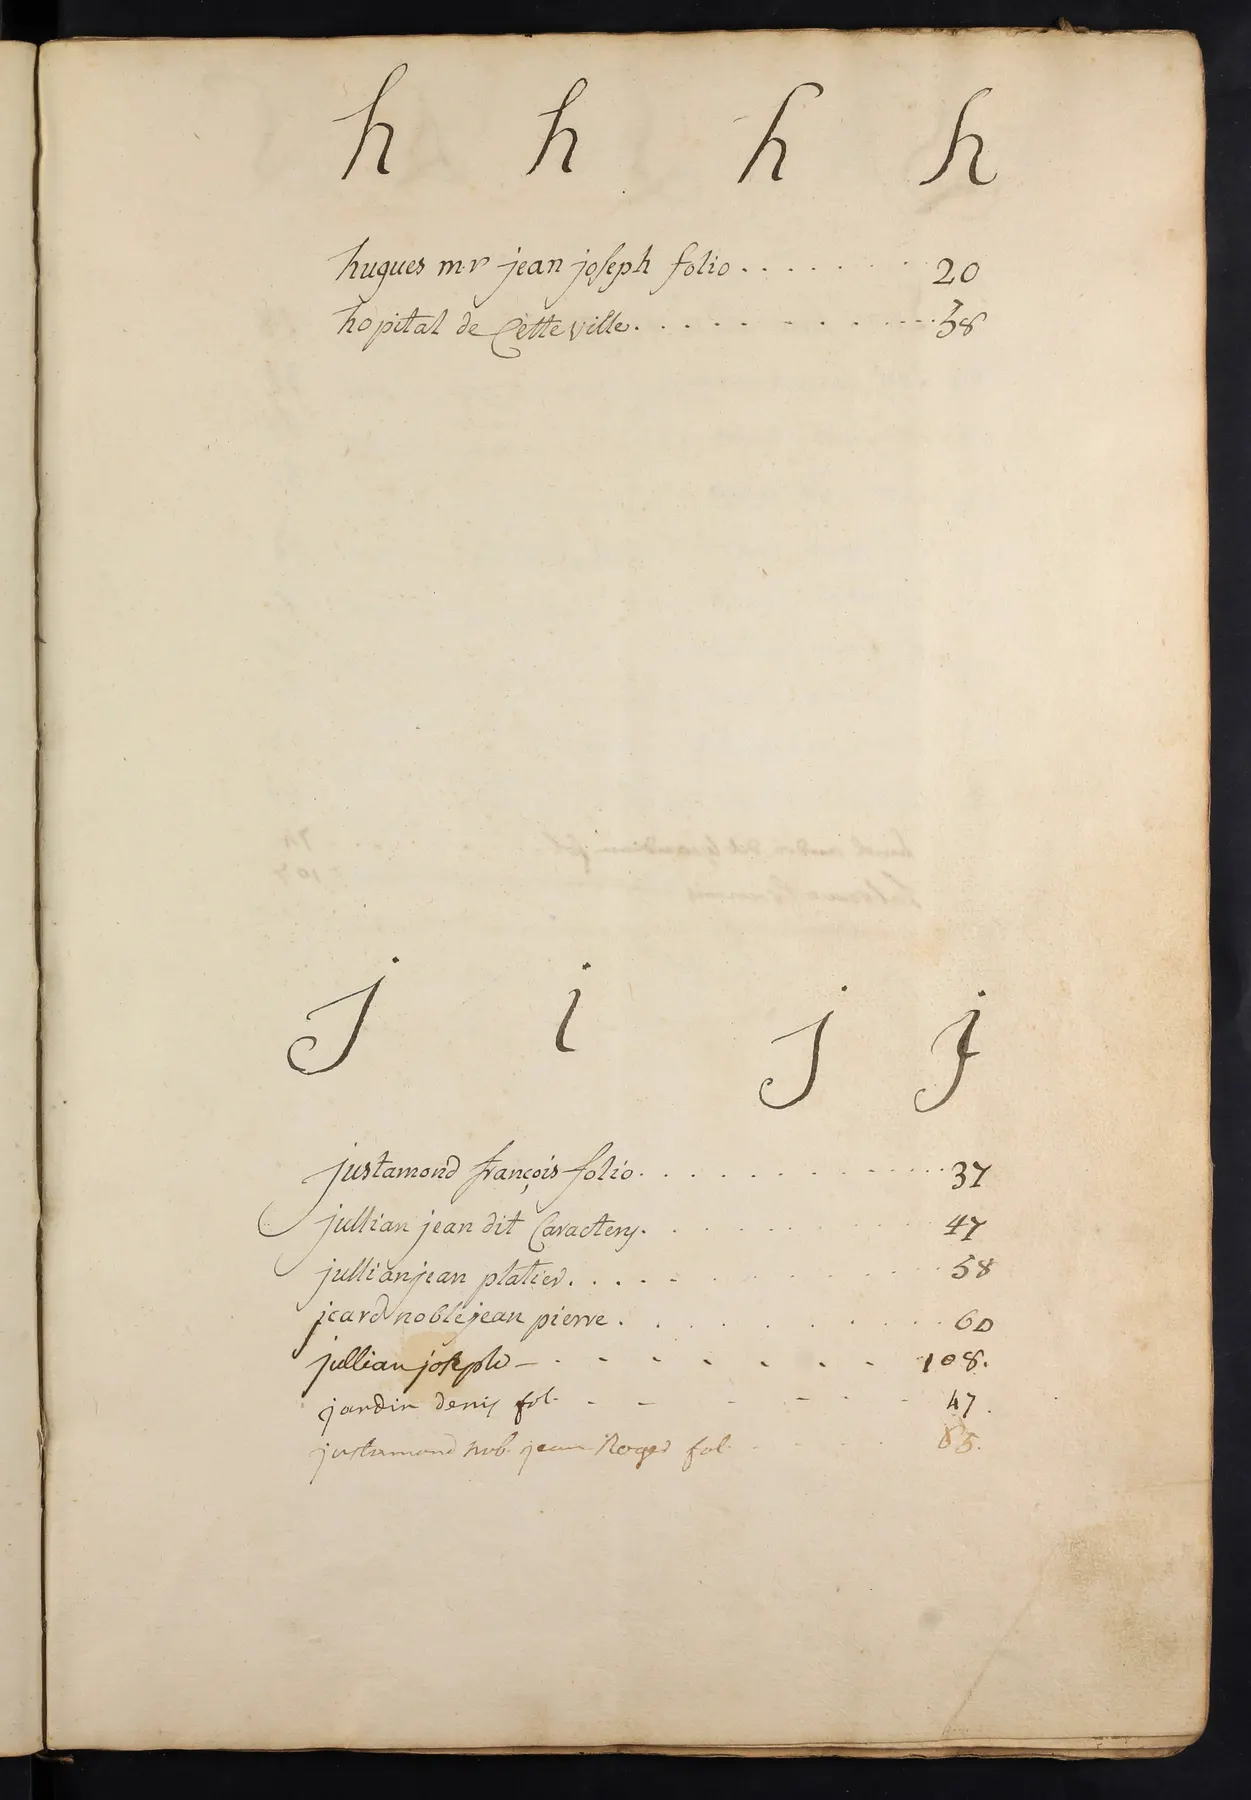 h h h h
hugues mr jean joseph folio . . . . . . . 20
hopital de Cette ville . . . . . . . . . . 58
j i j j
justamond françois folio . . . . . . . . . 37
jullian jean dit Caracteny . . . . . . . . 47
jullian jean platier . . . . . . . . . . 58
jcard noble jean pierre . . . . . . . . . 60
jullian joseph - . . . . . . . 108.
jardin denis fol. - - - - - 47.
justamond nob. jean Roger fol. - - - - 85.